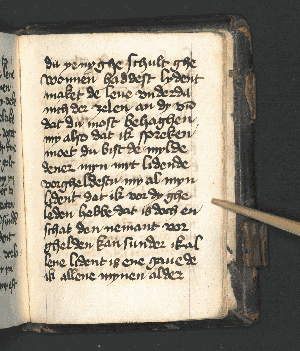 du yenyghe schult ghe
wonnen haddest lydent
maket de leue vnderda
nich der zelen an dy vro
dat du most behaghen
my also dat ik spreken
moet du bist de mylde
dener myn myt lidende
vorgheldestu my al myn
lident dat ik vor dy ghe
leden hebbe dat is doch en
schat den nemant vor
ghelden kan sunder ik al
lene lident is ene gaue de
ik allene mynen alder